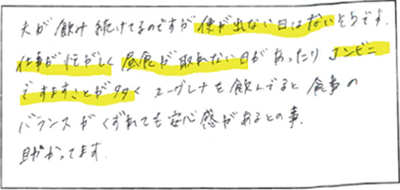 夫が飲み続けてるのですが便が出ない日はないそうです.
仕事が忙がしく昼食が取れない日があったりコンビニ
ですますことが多く ユーグレナを飲んでると食事の
バランスがくずれても安心感があるとの事.
助かってます.